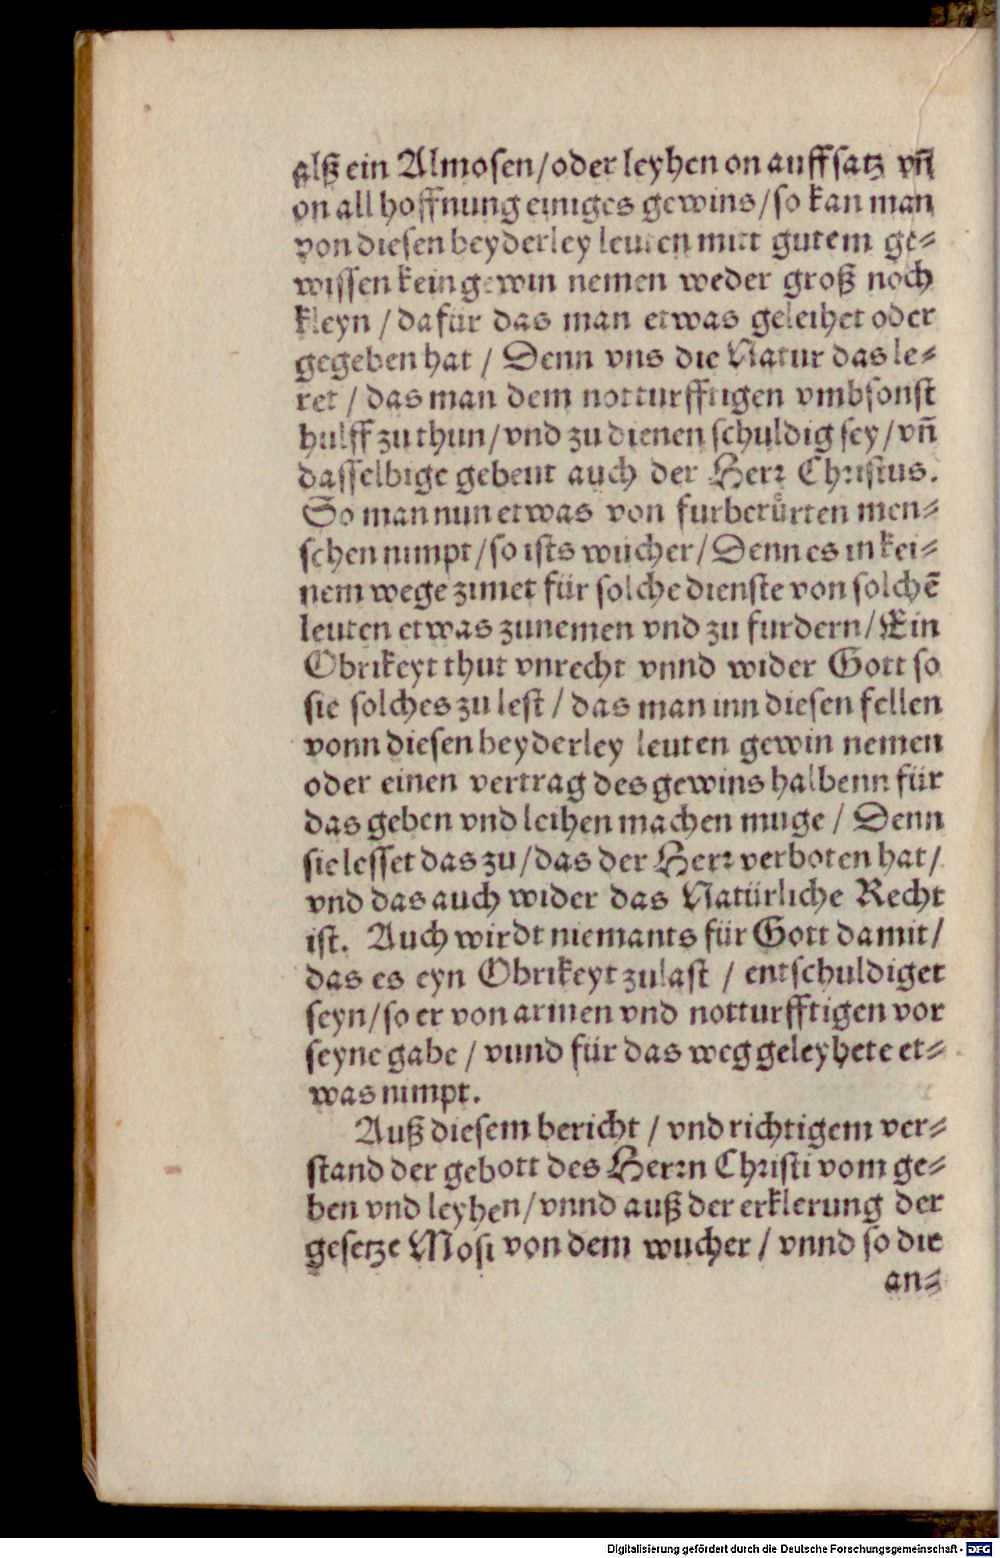 alß ein Almosen/oder leyhen on auffsatz vñ
on all hoffnung einiges gewins/so kan man
von diesen beyderley leuten mitt gutem ge⸗
wissen kein gewin nemen weder groß noch
kleyn / dafür das man etwas geleihet oder
gegeben hat / Denn vns die Natur das le⸗
ret / das man dem notturfftigen vmbsonst
hulff zu thun/vnd zu dienen schuldig sey/vñ
dasselbige gebeut auch der Herr Christus.
So man nun etwas von furberürten men⸗
schen nimpt/so ists wucher/Denn es in kei⸗
nem wege zimet für solche dienste von solchē
leuten etwas zunemen vnd zu furdern/Ein
Obrikeyt thut vnrecht vnnd wider Gott so
sie solches zu lest / das man inn diesen fellen
vonn diesen beyderley leuten gewin nemen
oder einen vertrag des gewins halbenn für
das geben vnd leihen machen muge / Denn
sie lesset das zu/das der Herr verboten hat/
vnd das auch wider das Natürliche Recht
ist. Auch wirdt niemants für Gott damit/
das es eyn Obrikeyt zulast / entschuldiget
seyn/so er von armen vnd notturfftigen vor
seyne gabe / vnnd für das weg geleyhete et⸗
was nimpt.
Auß diesem bericht / vnd richtigem ver⸗
stand der gebott des Herrn Christi vom ge⸗
ben vnd leyhen/vnnd auß der erklerung der
gesetze Mosi von dem wucher / vnnd so die
an⸗
Digitalisierung gefördert durch die Deutsche Forschungsgemeinschaft - DFG